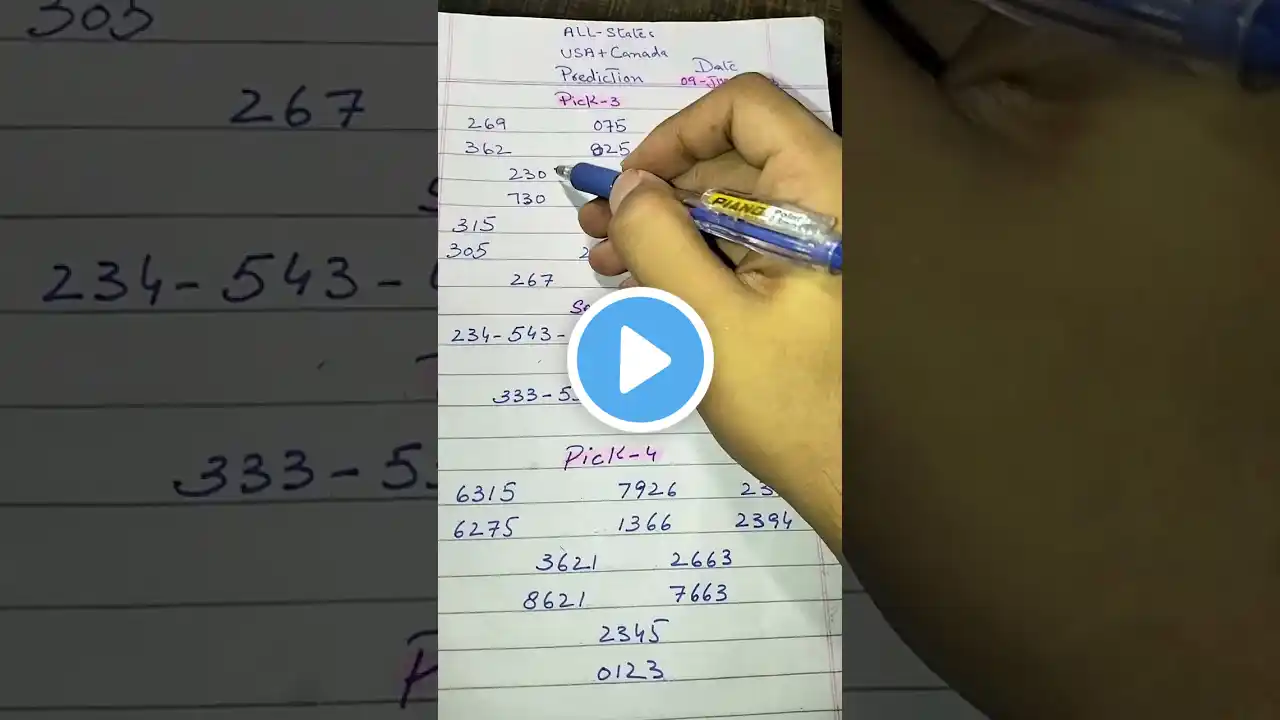 ALL-States
USA+Canada
Prediction
Date
Pick-3
269 075
362 025
230
730
315
305 2
267
234-543-
333-5
Pick-4
6315 7926
6275 1366 2394
3621 2663
8621 7663
2345
0123
PIANO
Point
305
267
234-543-
333-5